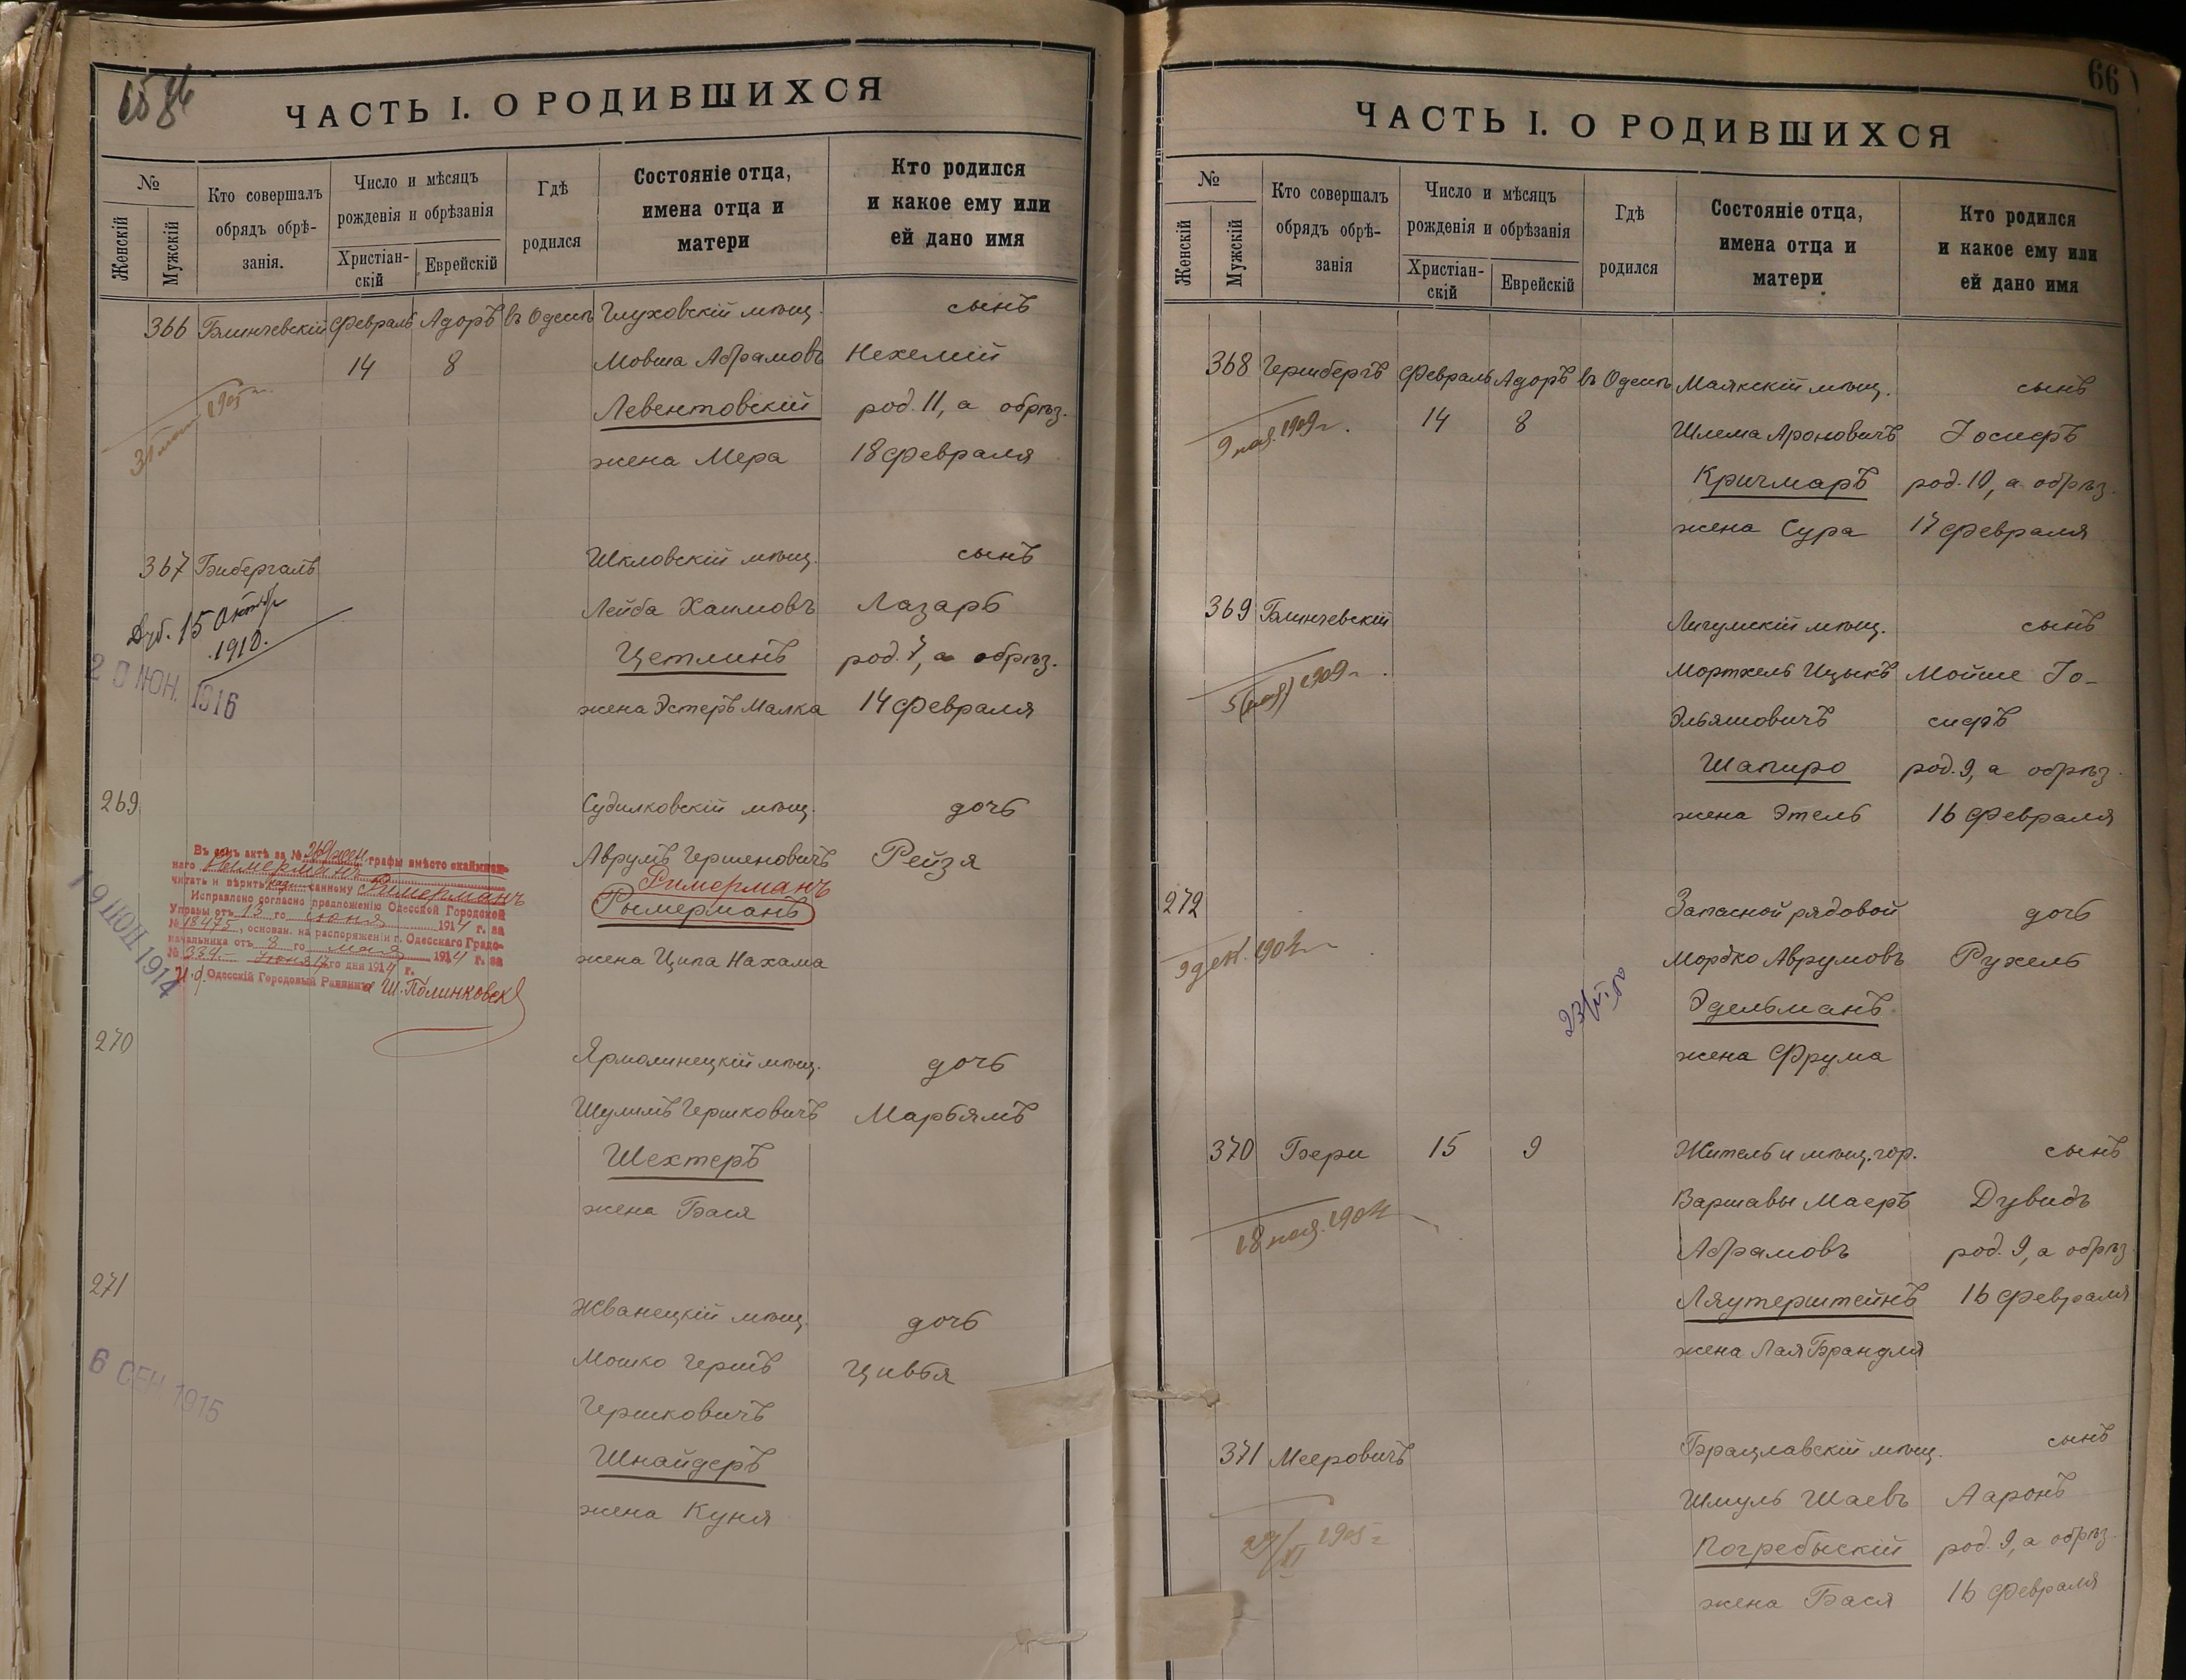 ЧАСТЬ I. О РОДИВШИХСЯ
№
Женскій
Мужскій
Кто совершалъ
обрядъ обрѣ-
занія.
Число и мѣсяцъ
рожденія и обрѣзанія
Христіан-
скій
Еврейскій
Гдѣ
родился
Состояніе отца,
имена отца и
матери
Кто родился
и какое ему или
ей дано имя
366 Блинчевскій Февраль Адоръ въ Одессѣ Глуховскій мѣщ. сынъ
14 8 Мовша Абрамовъ Нехемій
Левентовскій род. 11, а обрѣз.
жена Мера 18 февраля
1905 г.
367 Бибергалъ Шкловскій мѣщ. сынъ
Лейба Хаимовъ Лазарь
Цетлинъ род. 7, а обрѣз.
жена Эстеръ Малка 14 февраля
Дуб. 15 Октябр
1910.
20 ІЮН. 1916
269 Судилковскій мѣщ. дочь
Аврумъ Гершеновичъ Рейзя
Римерманъ
Рымерманъ
жена Ципа Нахама
Въ семъ актѣ за № 269 жен графы вмѣсто
наго Рымерманъ
читать и вѣрить Римерманъ
Исправлено согласно предложенію Одесской Городской
Управы отъ 13 го іюня 1914 г. за
№ 18475, основан. на распоряженіи г. Одесскаго Градо-
начальника отъ 8 го мая 1914 г. за
№ 334. Іюня 17 го дня 1914 г.
И.д. Одесскій Городовый Раввинъ Ш. Полинковск
19 ІЮН 1914
270 Ярмолинецкій мѣщ. дочь
Шулимъ Гершковичъ Марьямъ
Шехтеръ
жена Бася
271 Жванецкій мѣщ. дочь
Мошко Гершъ Цивья
Гершковичъ
Шнайдеръ
жена Куня
6 СЕН 1915
66
ЧАСТЬ I. О РОДИВШИХСЯ
№
Женскій
Мужскій
Кто совершалъ
обрядъ обрѣ-
занія
Число и мѣсяцъ
рожденія и обрѣзанія
Христіан-
скій
Еврейскій
Гдѣ
родился
Состояніе отца,
имена отца и
матери
Кто родился
и какое ему или
ей дано имя
368 Гершбергъ Февраль Адоръ въ Одессѣ Маякскій мѣщ. сынъ
14 8 Шлема Ароновичъ Іосифъ
Кричмаръ род. 10, а обрѣз.
жена Сура 17 февраля
9 1909 г.
369 Блинчевскій Личумскій мѣщ. сынъ
Мортхель Ицыкъ Мойше Іо-
Эльяшовичъ сифъ
Шапиро род. 9, а обрѣз.
жена Этель 16 февраля
5 1909 г.
272 Запасной рядовой дочь
Мордко Аврумовъ Рухель
Эдельманъ
жена Фрума
9 дек. 1904 г.
370 Бери 15 9 Житель и мѣщ. гор. сынъ
Варшавы Маеръ Дувидъ
Абрамовъ род. 9, а обрѣз.
Ляутерштейнъ 16 февраля
жена Лая Брандля
18 1904
371 Мееровичъ Брацлавскій мѣщ. сынъ
Шмуль Шаевъ Ааронъ
Погребыскій род. 9, а обрѣз.
жена Бася 16 февраля
29/XI 1905 г